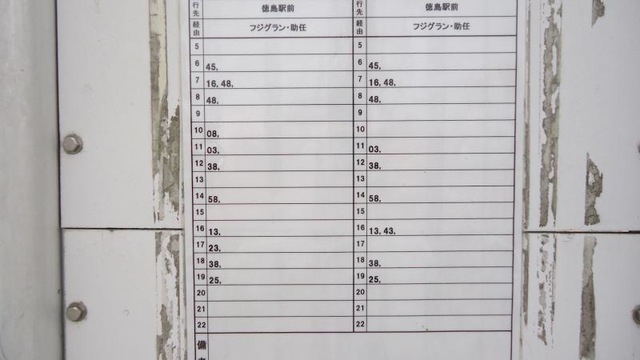 行先 徳島駅前 行先 徳島駅前
経由 フジグラン・助任 経由 フジグラン・助任
5 5
6 45. 6 45.
7 16. 48. 7 16. 48.
8 48. 8 48.
9 9
10 08. 10
11 03. 11 03.
12 38. 12 38.
13 13
14 58. 14 58.
15 15
16 13. 16 13. 43.
17 23. 17
18 38. 18 38.
19 25. 19 25.
20 20
21 21
22 22
備